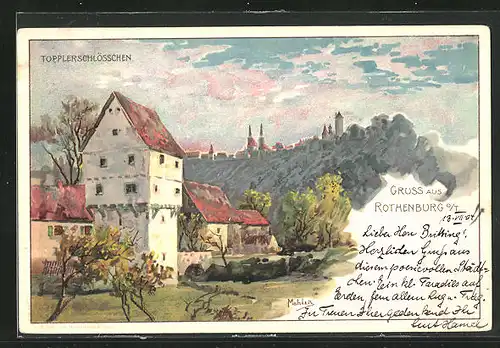 TOPPLERSCHLÖSSCHEN
GRUSS AUS
ROTHENBURG O/T
13.VII.04
Lieber Herr
Herzlichen Gruss aus
diesem poesievollen Städt-
chen. Ein kl. Paradies auf
Erden, fern allem Lug u. Trug.
In Treuen Ihrer gedenkend Ihr